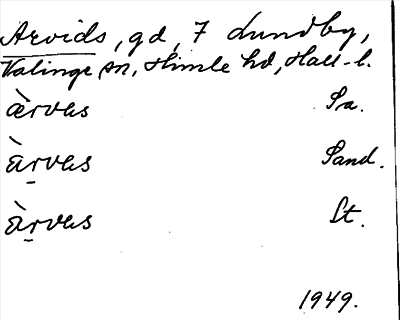 Arvids, gd, 7 Lundby,
Valinge sn, Himle hd, Hall-l.
àrvas Sa.
àr̲vas Sand.
àr̲vas St.
1949.